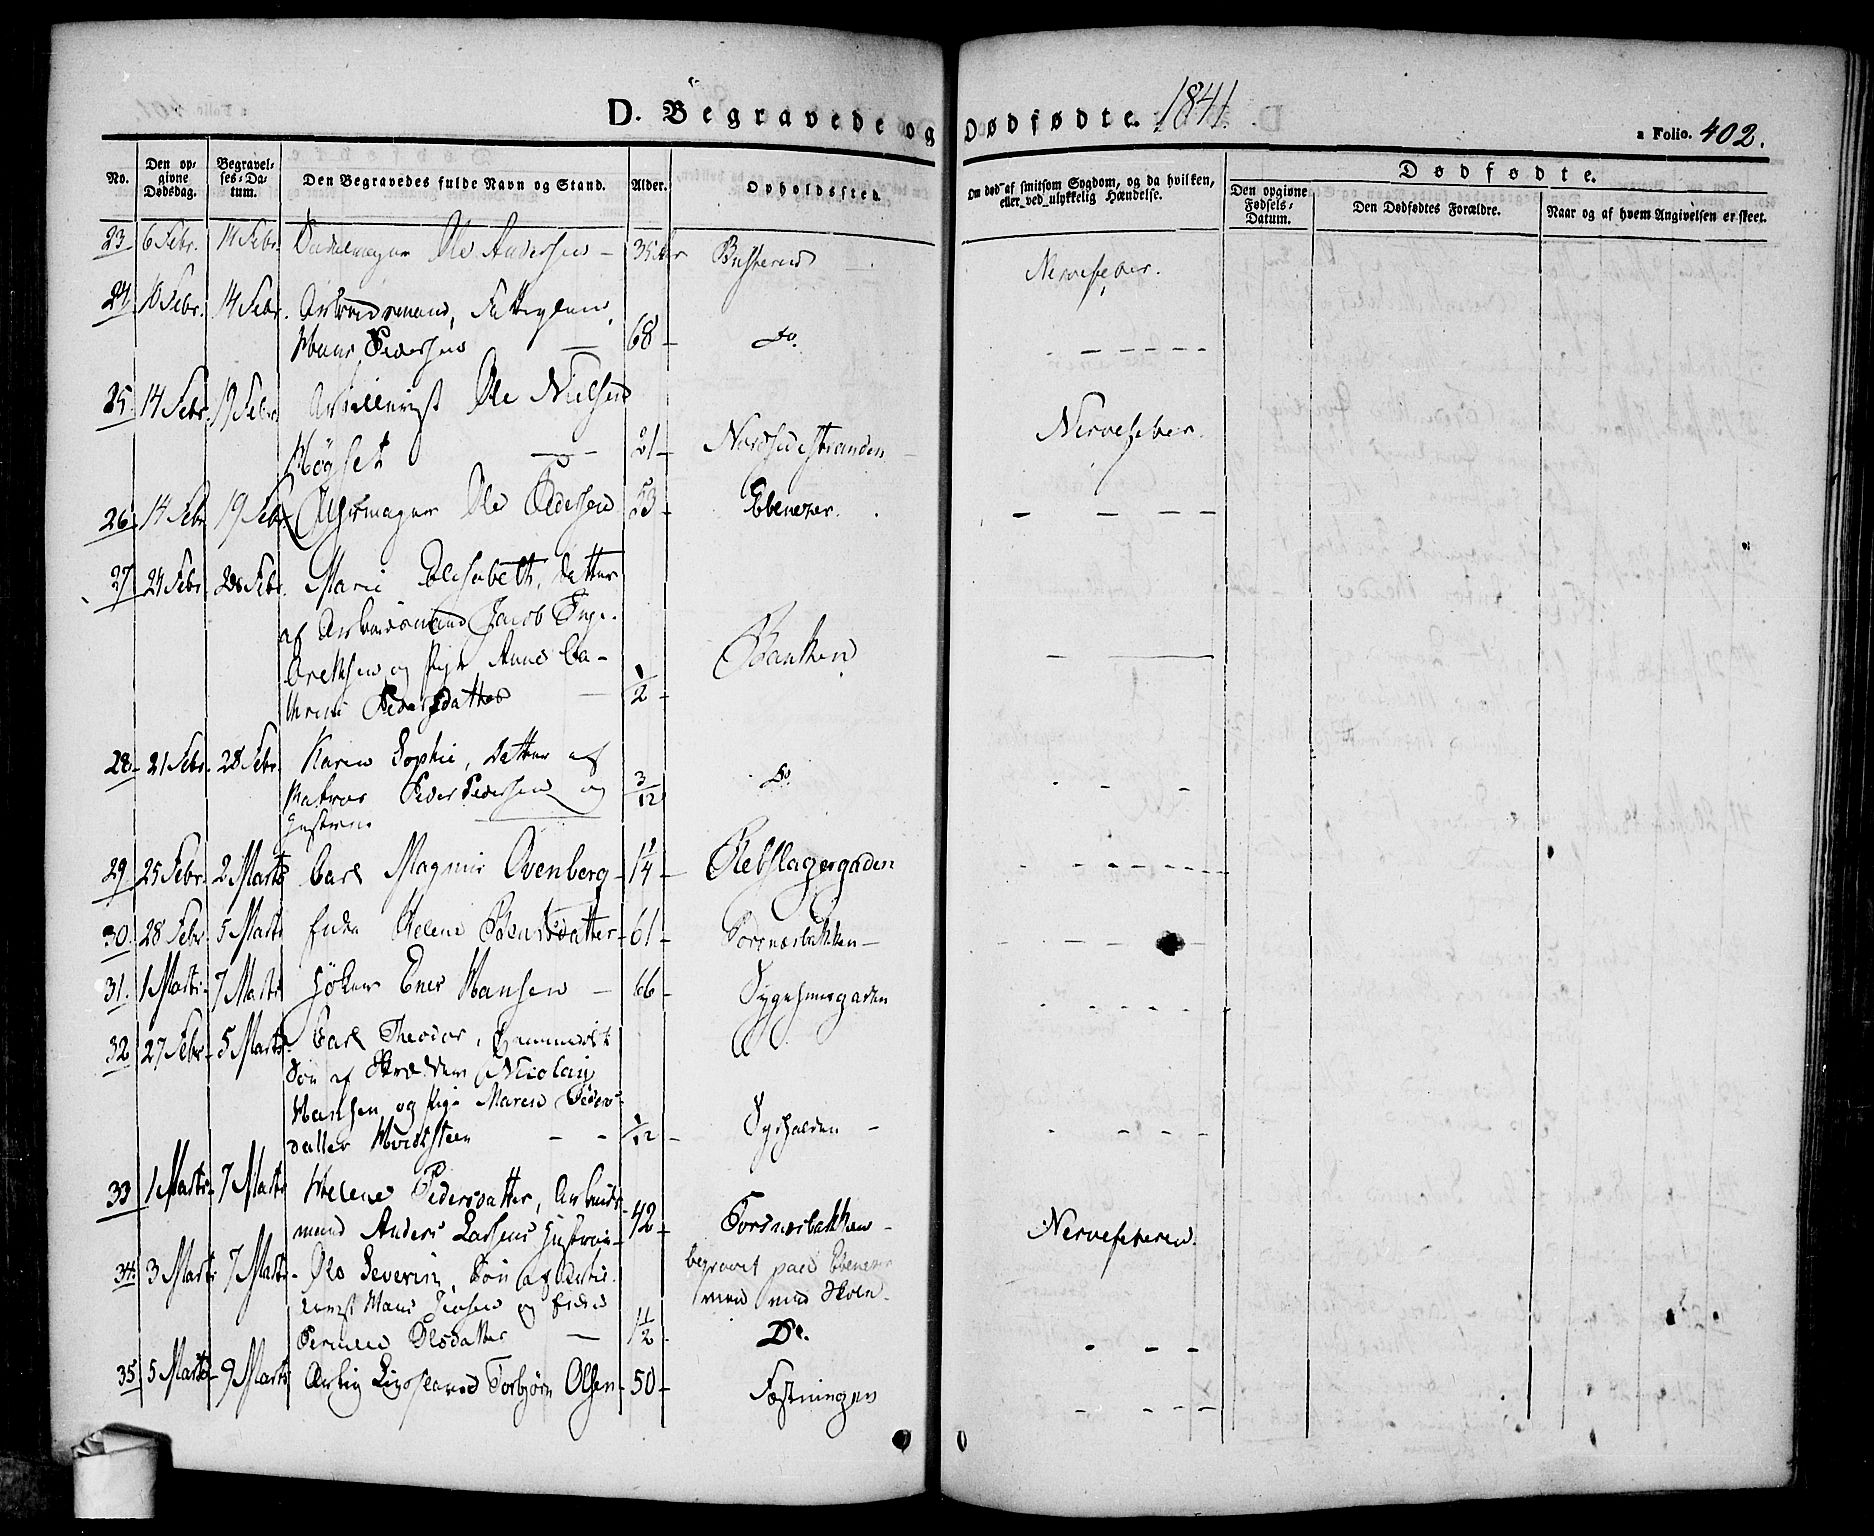 D. Begravede og Dødfødte. 1841.
a Folio. 402.
No.
Den opgivne Dødsdag.
Begravelses-Datum.
Den Begravedes fulde Navn og Stand.
Alder.
Opholdssted.
Om død af smitsom Sygdom, og da hvilken, eller ved ulykkelig Hændelse.
Dødfødte.
Den opgivne Fødsels-Datum.
Den Dødfødtes Forældre.
Naar og af hvem Angivelsen er skeet.
23 6 Febr. 14 Febr. Ole Andersen - 35 Aar Nervefeber.
24 10 Febr. 14 Febr. Arbeidsmand, Fattiglem,
Hans Pedersen 68 - Do.
25 14 Febr. 19 Febr. Artillerist Ole Nielsen
Høgset 21 - Nordsidestranden Nervefeber.
26 14 Febr 19 Febr Uhrmager Ole Pedersen 53 - Ebenezer.
27 24 Febr. 28 Febr. Marie Elisabeth, Datter
af Arbeidsmand Jacob Inge-
bretsen og Pige Anne Ca-
thrine Pedersdatter 1/2 - Banken
28 21 Febr. 28 Febr. Karen Sophie, Datter af
Matros Peder Pedersen og
Hustrue 3/12 Do.
29 25 Febr. 2 Marts Carl Magnus Ovenberg - 14 - Rebslagergaden
30. 28 Febr 5 Marts Enke Helene - 61 - Torsnæsbakken -
31. 1 Marts 7 Marts Hansen - 66 - Sygehuusgaden
32 27 Febr. 5 Marts Carl Theodor,
Søn af Skrædder Nicolay
Hansen og Pige Maren Peders-
datter Hvidsteen 1/12 -
33 1 Marts 7 Marts Helene Pedersdatter, Arbeids-
mand Anders Larsens Hustrue - 42 - Torsnæsbakken - Nervefeberen.
34. 3 Marts 7 Marts Ole Severin, Søn af Artil-
lerist Hans Jensen og Enke
Pernille Olsdatter 1 1/2 Do.
begravet paa Ebenezer
35 5 Marts - 9 Marts Torbjørn Olsen - 50 - Fæstningen